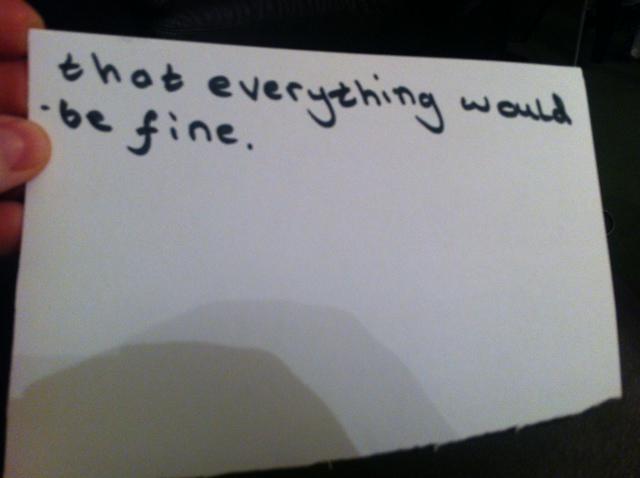 that everything would
be fine.